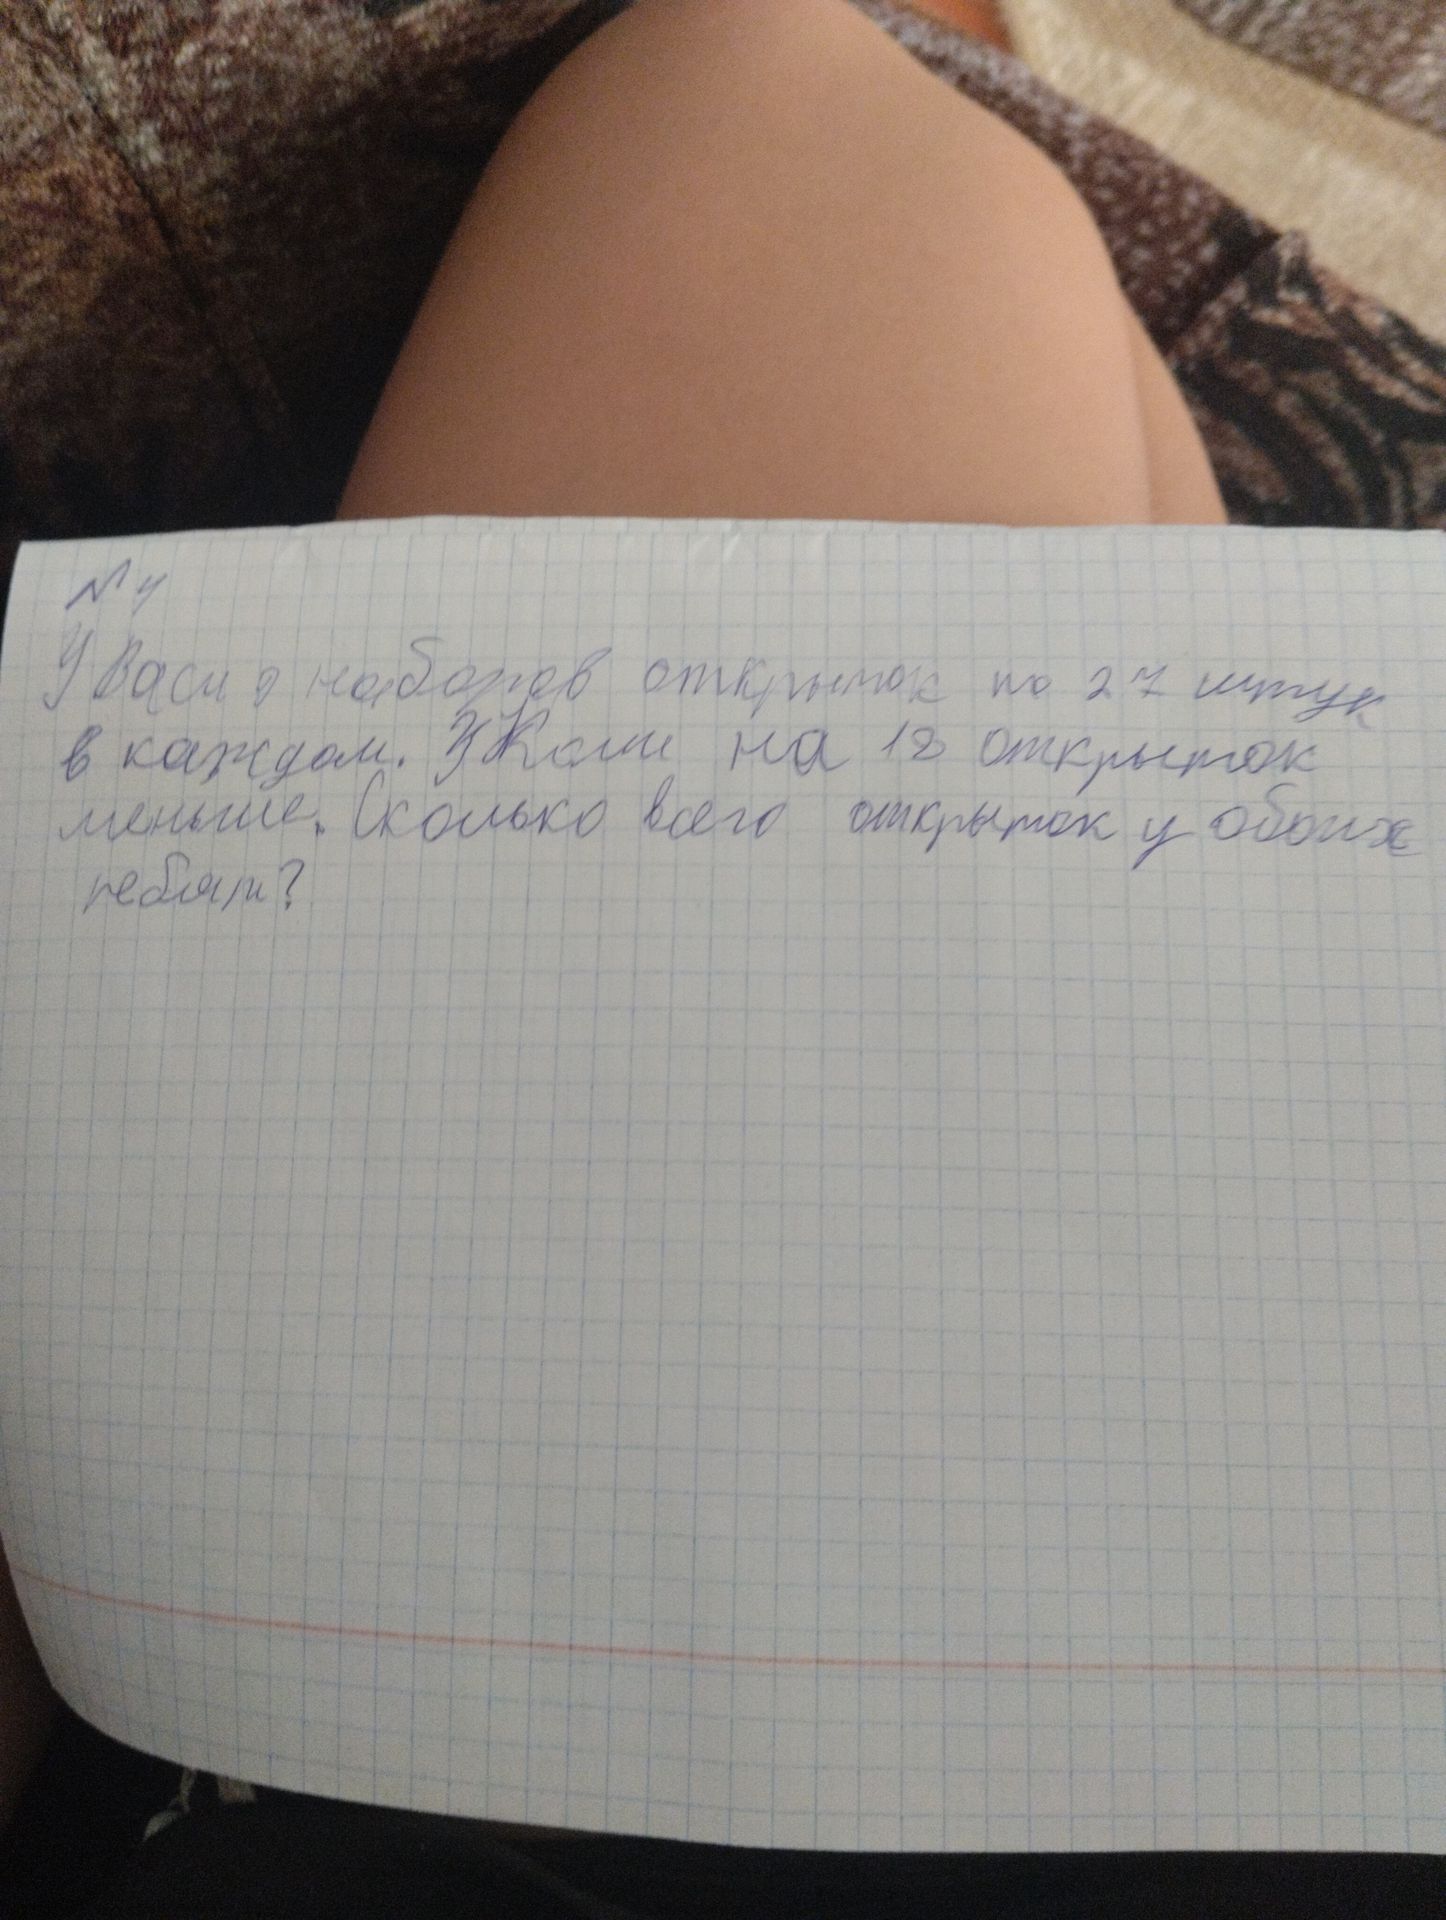 № 4
У Васи 9 наборов открыток по 27 штук
в каждом. У Коли на 18 открыток
меньше. Сколько всего открыток у обоих
ребят?